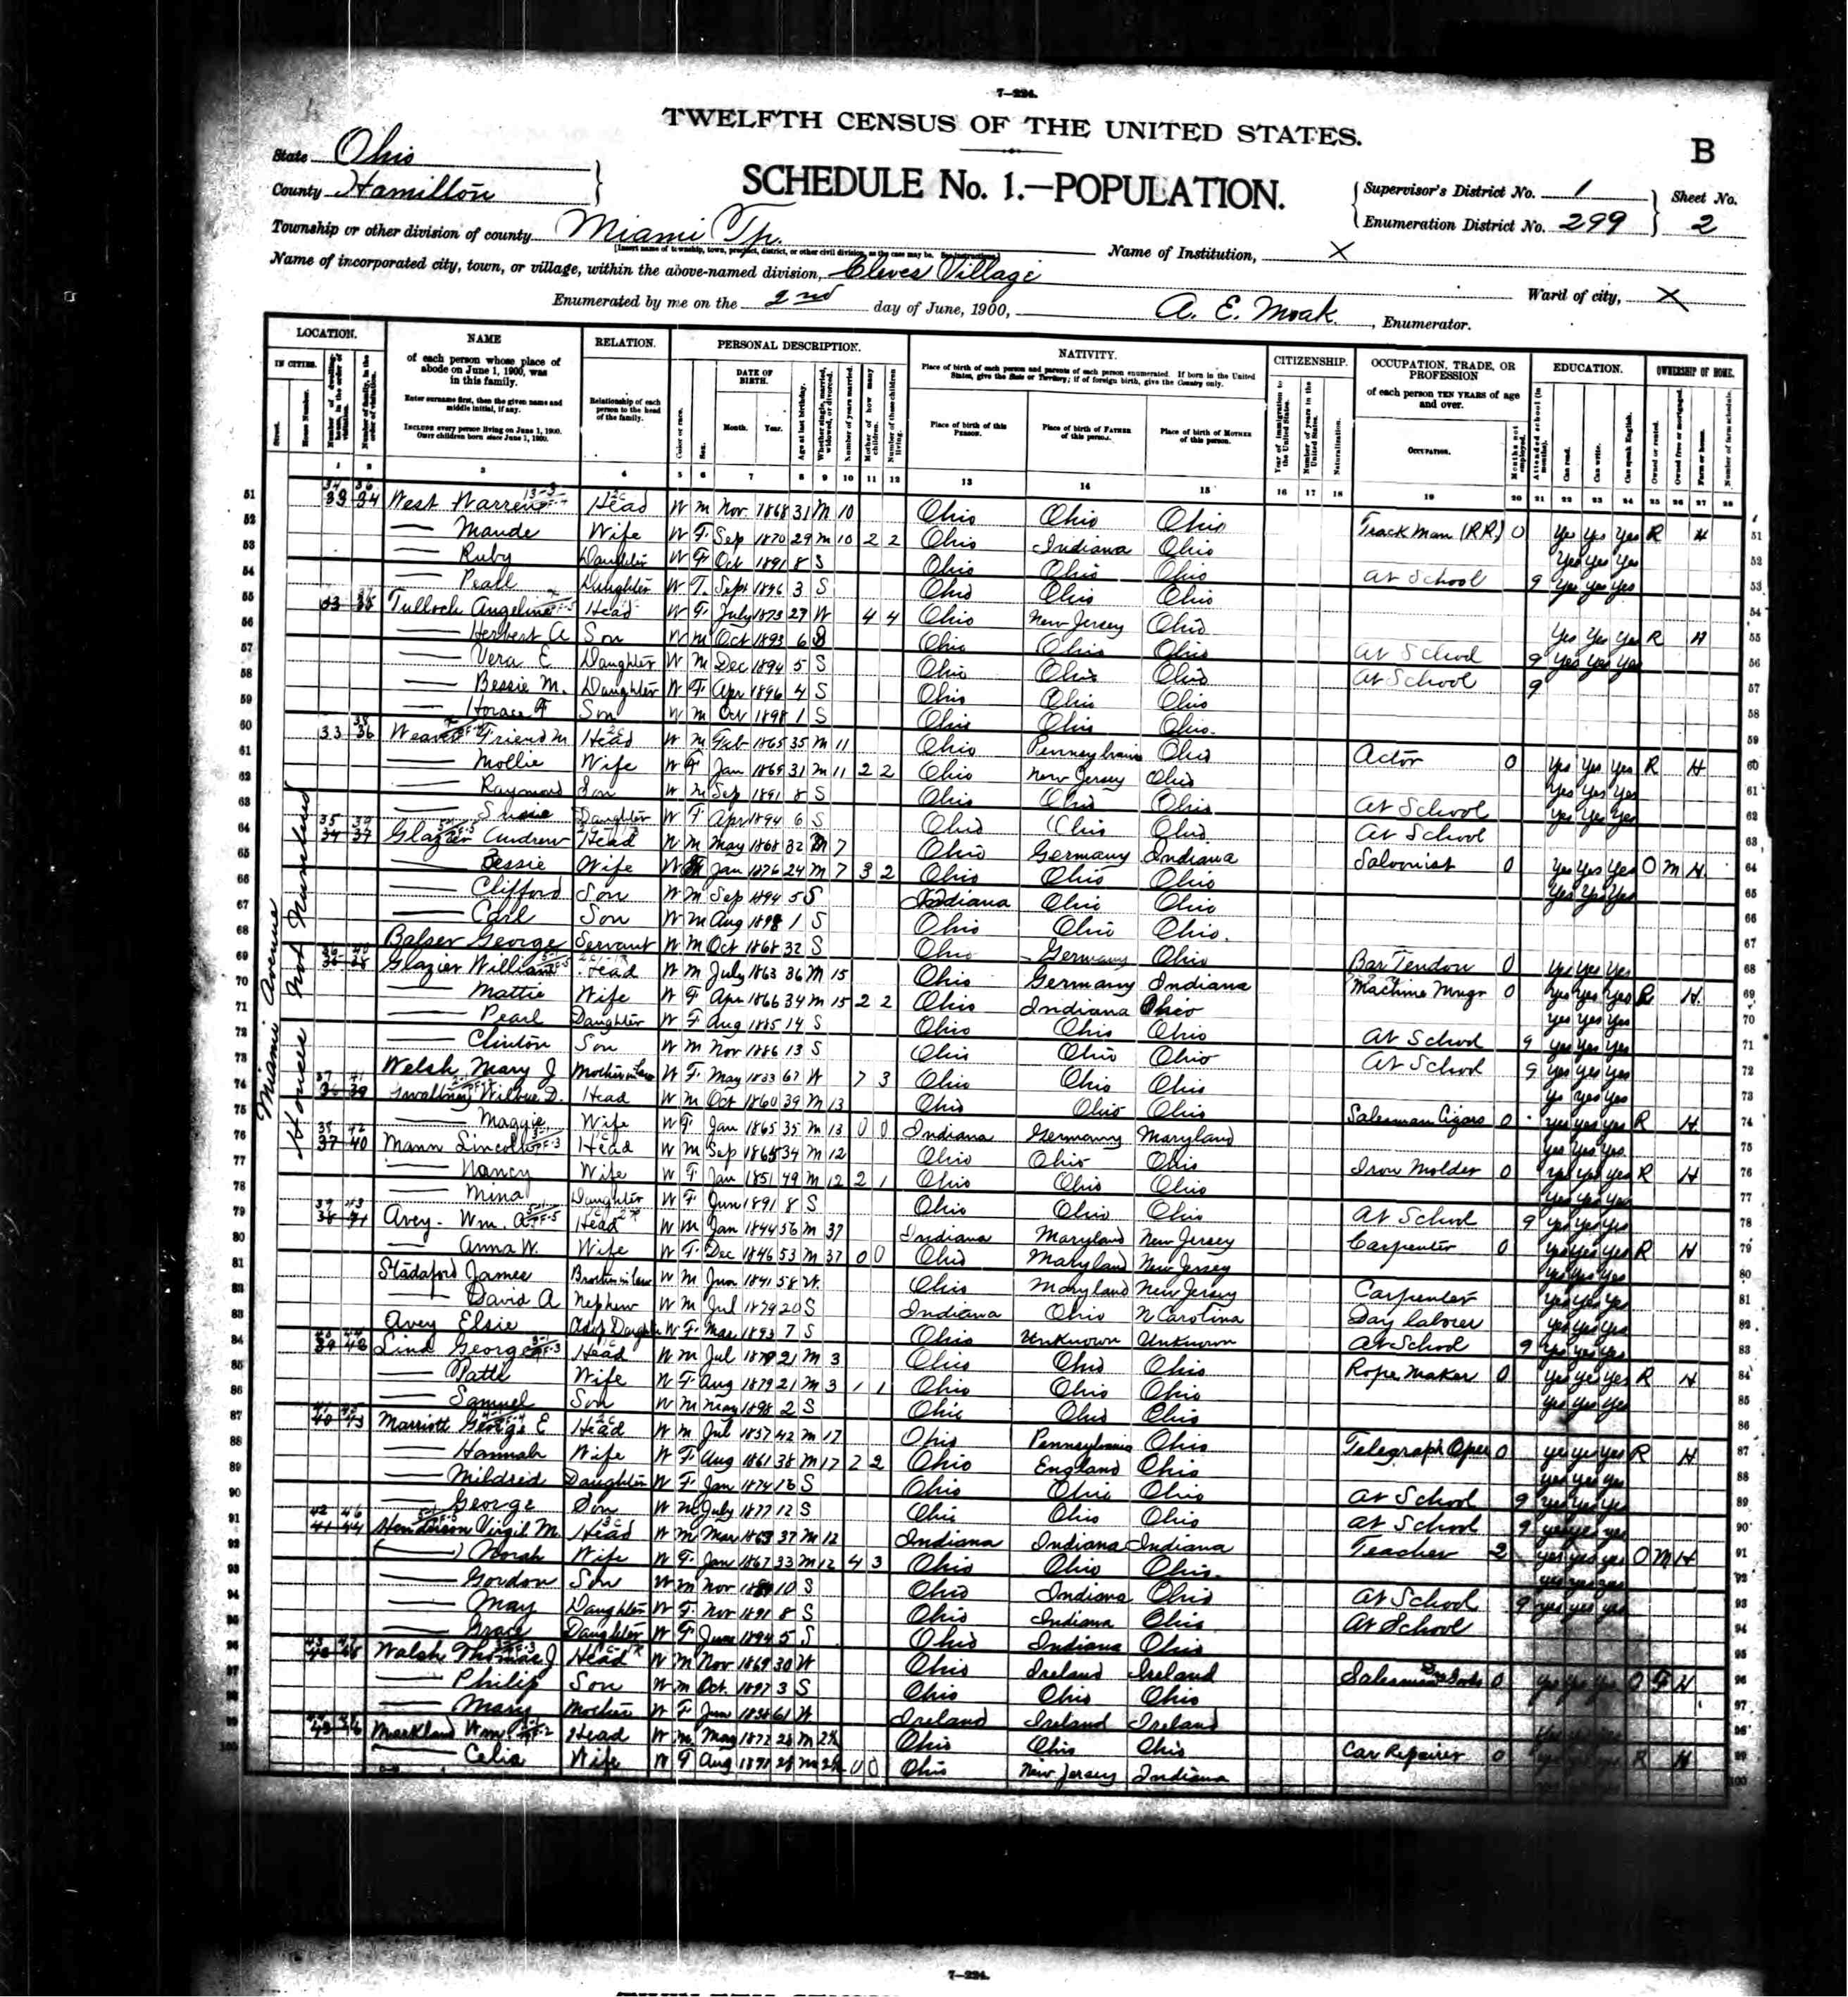 7—224.
TWELFTH CENSUS OF THE UNITED STATES.
B
State Ohio
County Hamilton
SCHEDULE No. 1.—POPULATION.
Supervisor's District No. 1
Sheet No.
Enumeration District No. 299
2
Township or other division of county Miami Tp.
Name of Institution, X
Name of incorporated city, town, or village, within the above-named division, Cleves Village
Ward of city, X
Enumerated by me on the 2nd day of June, 1900, A. E. Moak, Enumerator.
LOCATION. NAME RELATION. PERSONAL DESCRIPTION. NATIVITY. CITIZENSHIP. OCCUPATION, TRADE, OR PROFESSION EDUCATION. OWNERSHIP OF HOME.
IN CITIES.
of each person whose place of abode on June 1, 1900, was in this family.
Enter surname first, then the given name and middle initial, if any.
INCLUDE every person living on June 1, 1900. OMIT children born since June 1, 1900.
Relationship of each person to the head of the family.
DATE OF BIRTH.
Month. Year.
Place of birth of each person and parents of each person enumerated. If born in the United States, give the State or Territory; if of foreign birth, give the Country only.
Place of birth of this PERSON. Place of birth of FATHER of this person. Place of birth of MOTHER of this person.
of each person TEN YEARS of age and over.
OCCUPATION.
1 2 3 4 5 6 7 8 9 10 11 12 13 14 15 16 17 18 19 20 21 22 23 24 25 26 27 28
Miami Avenue
Houses Not Numbered
51 West Warren Head W M Nov 1868 31 M 10 Ohio Ohio Ohio Track Man (RR) 0 yes yes yes R H
52 Maude Wife W F Sep 1870 29 M 10 2 2 Ohio Indiana Ohio yes yes yes
53 Ruby Daughter W F Oct 1891 8 S Ohio Ohio Ohio At School 9 yes yes yes
54 Pearl Daughter W F Sept 1896 3 S Ohio Ohio Ohio
55 Tulloch Angeline Head W F July 1873 27 W 4 4 Ohio New Jersey Ohio yes yes yes R H
56 Herbert A Son W M Oct 1893 6 S Ohio Ohio Ohio At School 9 yes yes yes
57 Vera E Daughter W M Dec 1894 5 S Ohio Ohio Ohio At School 9
58 Bessie M. Daughter W F Apr 1896 4 S Ohio Ohio Ohio
59 Horace F Son W M Oct 1898 1 S Ohio Ohio Ohio
60 33 36 Weaver Friend M Head W M Feb 1865 35 M 11 Ohio Pennsylvania Ohio Actor 0 yes yes yes R H
61 Mollie Wife W F Jan 1869 31 M 11 2 2 Ohio New Jersey Ohio yes yes yes
62 Raymond Son W M Sep 1891 8 S Ohio Ohio Ohio At School yes yes yes
63 Susie Daughter W F Apr 1894 6 S Ohio Ohio Ohio At School
64 34 37 Glazier Andrew Head W M May 1868 32 M 7 Ohio Germany Indiana Saloonist 0 yes yes yes O M H
65 Bessie Wife W F Jan 1876 24 M 7 3 2 Ohio Ohio Ohio yes yes yes
66 Clifford Son W M Sep 1894 5 S Indiana Ohio Ohio
67 Carl Son W M Aug 1898 1 S Ohio Ohio Ohio.
68 Balser George Servant W M Oct 1868 32 S Ohio Germany Ohio Bar Tendor 0 yes yes yes
69 Glazier William Head W M July 1863 36 M 15 Ohio Germany Indiana Machine Mngr 0 yes yes yes R H
70 Mattie Wife W F Apr 1866 34 M 15 2 2 Ohio Indiana Ohio yes yes yes
71 Pearl Daughter W F Aug 1885 14 S Ohio Ohio Ohio At School 9 yes yes yes
72 Clinton Son W M Nov 1886 13 S Ohio Ohio Ohio At School 9 yes yes yes
73 Welsh Mary J Mother in Law W F May 1833 67 W 7 3 Ohio Ohio Ohio yes yes yes
74 36 39 Wilbur D. Head W M Oct 1860 39 M 13 Ohio Ohio Ohio Salesman Cigars 0 yes yes yes R H
75 Maggie Wife W F Jan 1865 35 M 13 0 0 Indiana Germany Maryland yes yes yes
76 37 40 Mann Lincoln Head W M Sep 1865 34 M 12 Ohio Ohio Ohio Iron Molder 0 yes yes yes R H
77 Nancy Wife W F Jan 1851 49 M 12 2 1 Ohio Ohio Ohio yes yes yes
78 Mina Daughter W F Jun 1891 8 S Ohio Ohio Ohio At School 9 yes yes yes
79 38 41 Avey Wm. A Head W M Jan 1844 56 M 37 Indiana Maryland New Jersey Carpenter 0 yes yes yes R H
80 Anna W. Wife W F Dec 1846 53 M 37 0 0 Ohio Maryland New Jersey yes yes yes
81 James Brother in Law W M Jun 1841 58 W Ohio Maryland New Jersey Carpenter yes yes yes
82 David A Nephew W M Jul 1879 20 S Indiana Ohio N Carolina Day laborer yes yes yes
83 Avey Elsie Adop Daughter W F Mar 1893 7 S Ohio Unknown Unknown At School 9 yes yes yes
84 39 42 Lind George Head W M Jul 1879 21 M 3 Ohio Ohio Ohio Rope Maker 0 yes yes yes R H
85 Wife W F Aug 1879 21 M 3 1 1 Ohio Ohio Ohio yes yes yes
86 Samuel Son W M May 1898 2 S Ohio Ohio Ohio
87 40 43 Marriott George E Head W M Jul 1857 42 M 17 Ohio Pennsylvania Ohio Telegraph Oper 0 yes yes yes R H
88 Hannah Wife W F Aug 1861 38 M 17 2 2 Ohio England Ohio yes yes yes
89 Mildred Daughter W F Jan S Ohio Ohio Ohio At School 9 yes yes yes
90 George Son W M July 1877 12 S Ohio Ohio Ohio At School 9 yes yes yes
91 41 44 Henderson Virgil M. Head W M Mar 1863 37 M 12 Indiana Indiana Indiana Teacher 2 yes yes yes O M H
92 Norah Wife W F Jan 1867 33 M 12 4 3 Ohio Ohio Ohio yes yes yes
93 Gordon Son W M Nov 10 S Ohio Indiana Ohio At School 9 yes yes yes
94 May Daughter W F Nov 1891 8 S Ohio Indiana Ohio At School
95 Grace Daughter W F June 1894 5 S Ohio Indiana Ohio
96 Walsh Thomas J Head W M Nov 1869 30 W Ohio Ireland Ireland Salesman 0 yes yes yes O F H
97 Philip Son W M Oct. 1897 3 S Ohio Ohio Ohio
98 Mary Mother W F June 1838 61 W Ireland Ireland Ireland
99 Markland Wm Head W M May 28 M Ohio Ohio Ohio Car Repairer 0 R H
100 Celia Wife W F Aug 0 0 Ohio New Jersey Indiana
7—224.